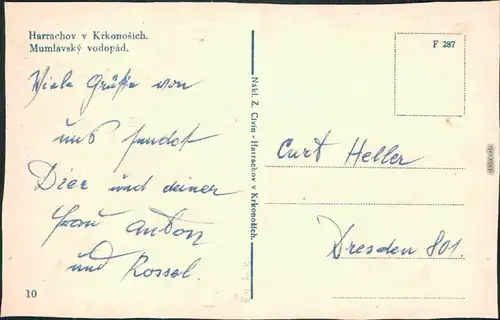 Harrachov v Krkonoších.
Mumlavský vodopád.
Viele Grüße von
uns sendet
Dier und deiner
Frau Anton
und Rossol.
10
Nákl. Z. Civín - Harrachov v Krkonoších.
F 287
Curt Heller
Dresden 801.